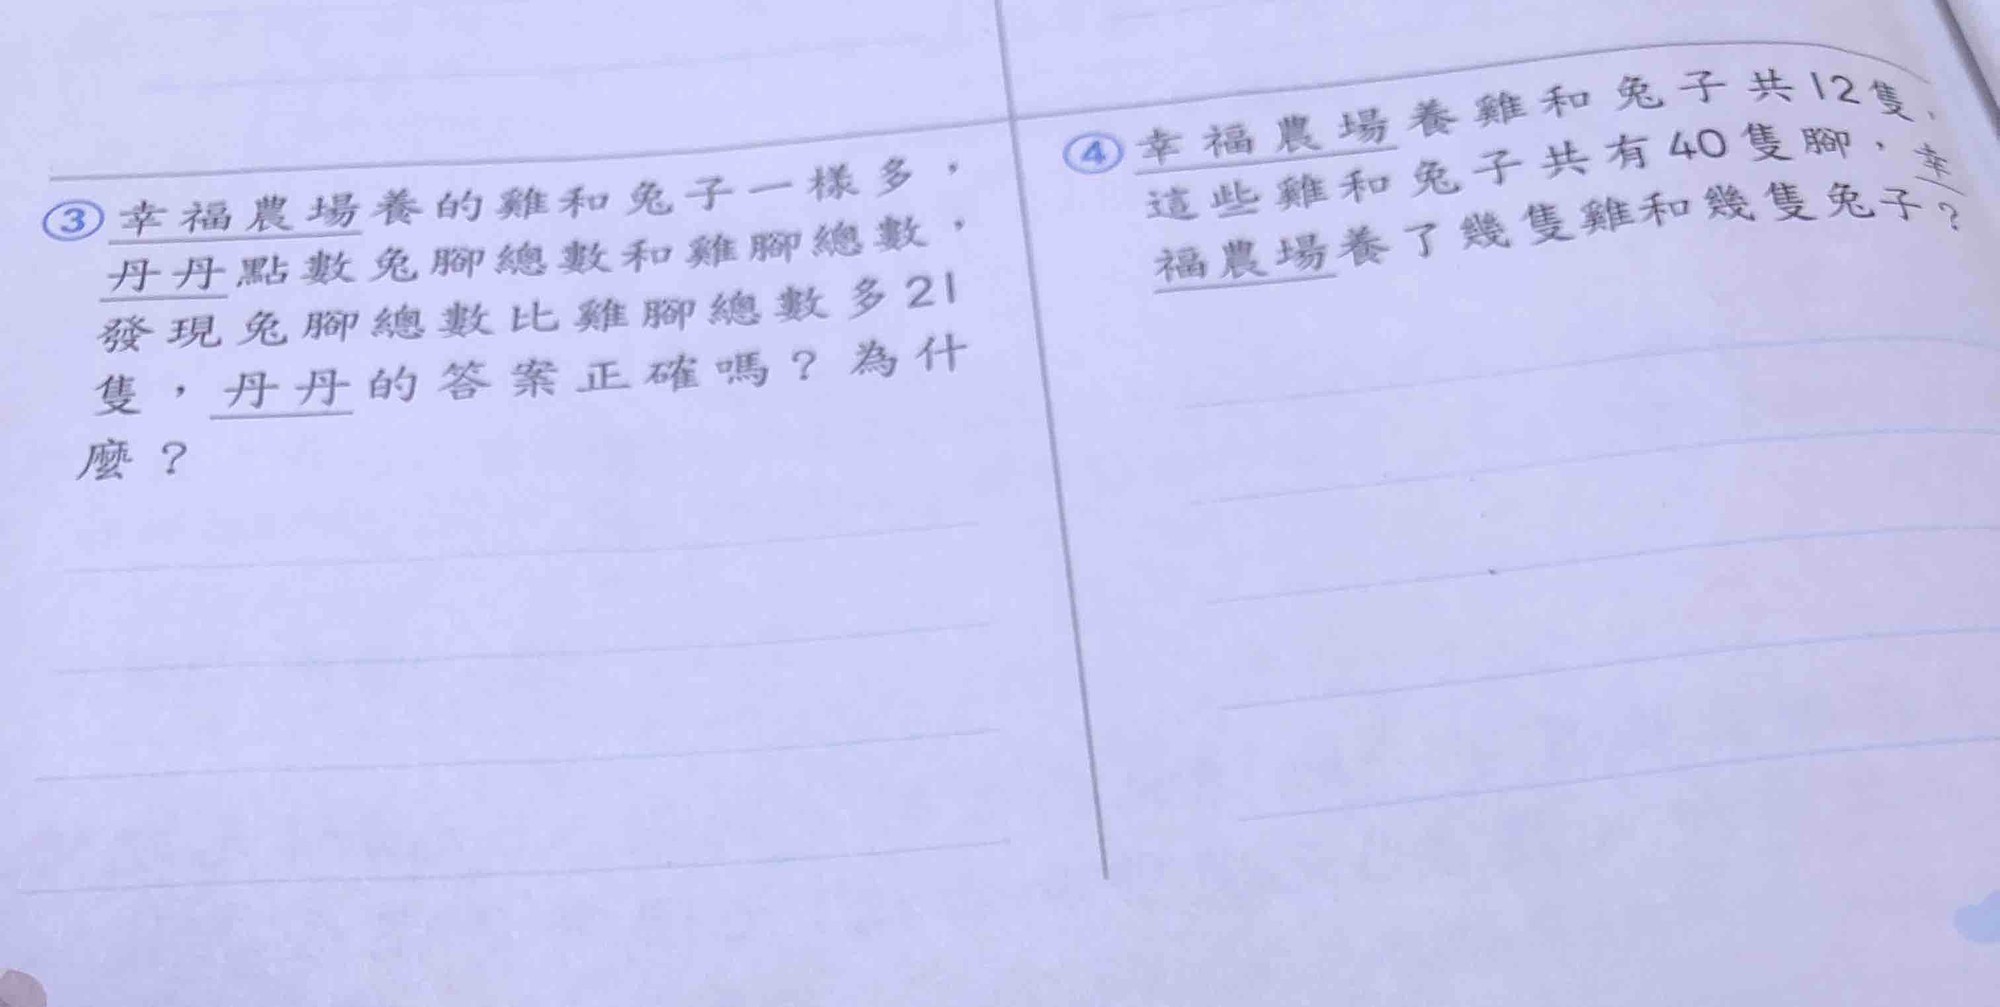 ③幸福農場養的雞和兔子一樣多，
丹丹點數兔腳總數和雞腳總數，
發現兔腳總數比雞腳總數多21
隻，丹丹的答案正確嗎？為什
麼？
④幸福農場養雞和兔子共12隻，
這些雞和兔子共有40隻腳，幸
福農場養了幾隻雞和幾隻兔子？